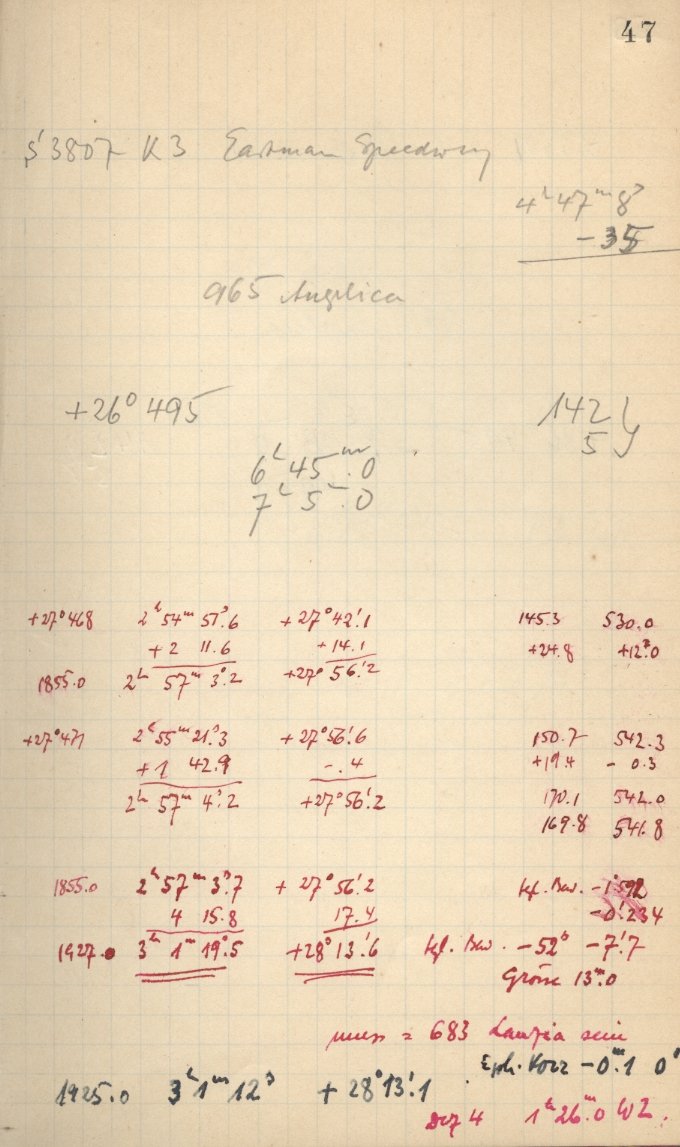 47
3807 K3 Eastman Speedway
4ʰ47ᵐ8ˢ
-35
965 Angelica
+26° 495
142
5
6ʰ45ᵐ.0
7ʰ5ᵐ.0
+27°468 2ʰ54ᵐ51ˢ.6 +27°42'.1 145.3 530.0
+2 11.6 +14.1 +24.8 +12.0
1855.0 2ʰ57ᵐ3ˢ.2 +27°56'.2
+27°471 2ʰ55ᵐ21ˢ.3 +27°56'.6 150.7 542.3
+1 42.9 -.4 +19.4 -0.3
2ʰ57ᵐ4ˢ.2 +27°56'.2 170.1 542.0
169.8 541.8
1855.0 2ʰ57ᵐ3ˢ.7 +27°56'.2 tgl. Bew.
4 15.8 17.4 -0'.234
1927.0 3ʰ1ᵐ19ˢ.5 +28°13'.6 tgl. Bew. -52ˢ -7'.7
Grösse 13ᵐ.0
muss = 683 Lanzia sein
Eph. Korr -0ᵐ.1 0'
1925.0 3ʰ1ᵐ12ˢ +28°13'.1
Dez 4 1ʰ26ᵐ.0 WZ.